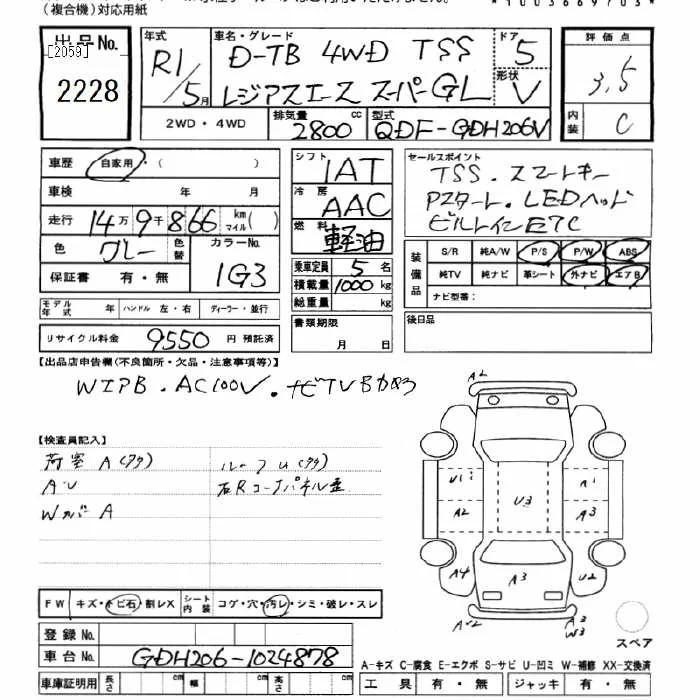 (複合機)対応用紙
出品No.
[2059]
2228
年式
R1/5月
車名・グレード
D-TB 4WD TSS
レジアスエース スーパーGL
ドア
5
形状
V
評価点
3.5
内装
C
2WD・4WD
排気量
2800cc
型式
QDF-GDH206V
車歴
自家用・( )
車検 年 月
走行 14万9千866 km マイル( )
色 グレー
色替
カラーNo.
1G3
保証書 有・無
シフト
IAT
冷房
AAC
燃料
軽油
乗車定員 5名
積載量 1000kg
総重量 kg
セールスポイント
TSS.スマートキー
Pスタート.LEDヘッド
ビルトインETC
装備品
S/R 純A/W P/S P/W ABS
純TV 純ナビ 革シート 外ナビ エアB
ナビ型番:
モデル年式 年 ハンドル 左・右 ディーラー・並行
書類期限
月 日
後日品
リサイクル料金 9550円 預託済
【出品店申告欄(不良箇所・欠品・注意事項等)】
WIPB.AC100V.ナビTVBカメラ
【検査員記入】
荷室 A(タク) ルーフU(タク)
A・U 右Rコーナーパネル歪
WカバーA
A2
U1
A1
U3
A2
A3
A4
A3
U2
A3
W3
スペア
FW キズ・トビ石・割レX
シート内装 コゲ・穴・汚レ・シミ・破レ・スレ
登録No.
車台No. GDH206-1024878
車庫証明用 長さ cm 幅 cm 高さ cm
A-キズ C-腐食 E-エクボ S-サビ U-凹ミ W-補修 XX-交換済
工具 有・無 ジャッキ 有・無